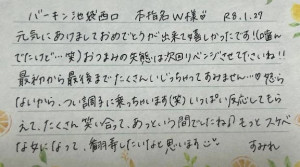 バーキン池袋西口 本指名W様♡ R8.1.27
元気にあけましておめでとうが出来て嬉しかったです!(噛んでたけど…笑)おつまみの失態は次回リベンジさせてださいね!!
最初から最後までたくさんいじっちゃってすみません…♡怒らないから、つい調子に乗っちゃいます(笑)いっぱい反応してもらえて、たくさん笑い合って、あっという間でしたね♪もっとスケベな女になって、翻弄したいなと思います
すみれ